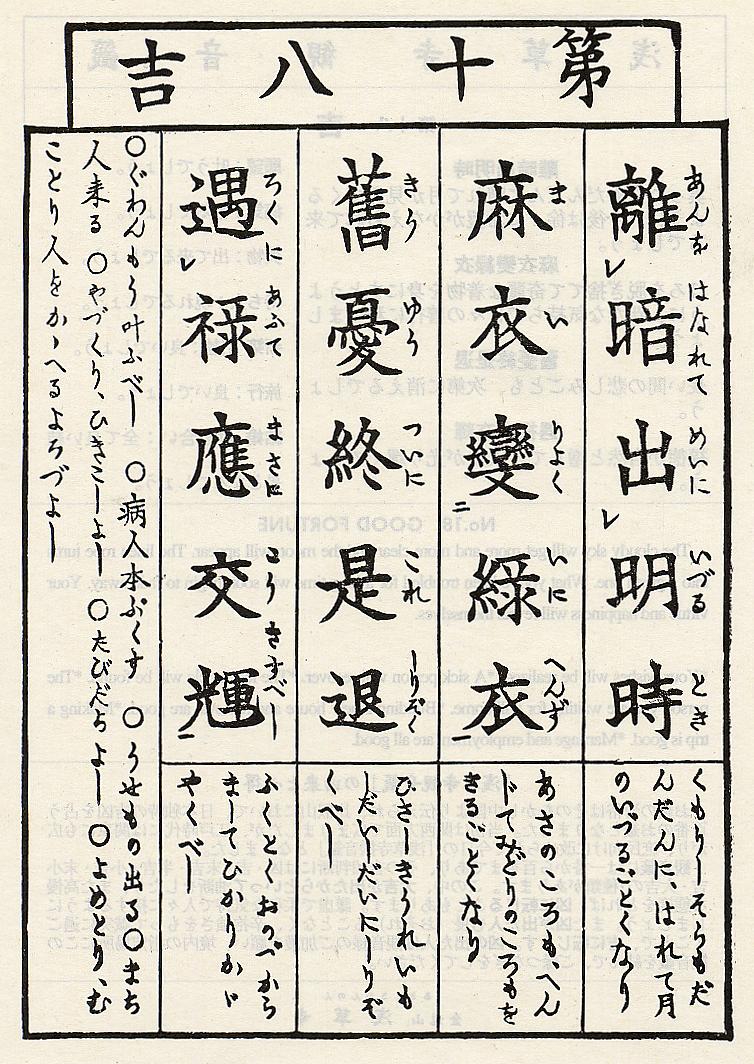 第十八吉
離暗出明時
あんを はなれて めいに いづる とき
くもりしそらもだ
んだんに、はれて月
のいづるごとくなり
麻衣變綠衣
ま い りよく いに へんず
あさのころも、へん
じてみどりのころもを
きるごとくなり
舊憂終是退
きう ゆう ついに これ しりぞく
ひさしきうれいも
しだいだいにしりぞ
くべし
遇禄應交輝
ろくに あふて まさに こう きすべし
ふくとくおのづから
ましてひかりかゞ
やくべし
○ぐわんもう叶ふべし ○病人本ぷくす ○うせもの出る○まち
人来る ○やづくり、ひきこしよし ○たびだちよし ○よめとり、む
ことり人をかゝへるよろづよし